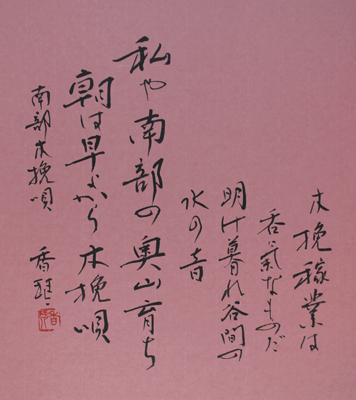 木挽稼業は
呑気なものだ
明け暮れ谷間の
水の音
私や南部の奥山育ち
朝は早よから木挽唄
南部木挽唄
香琴